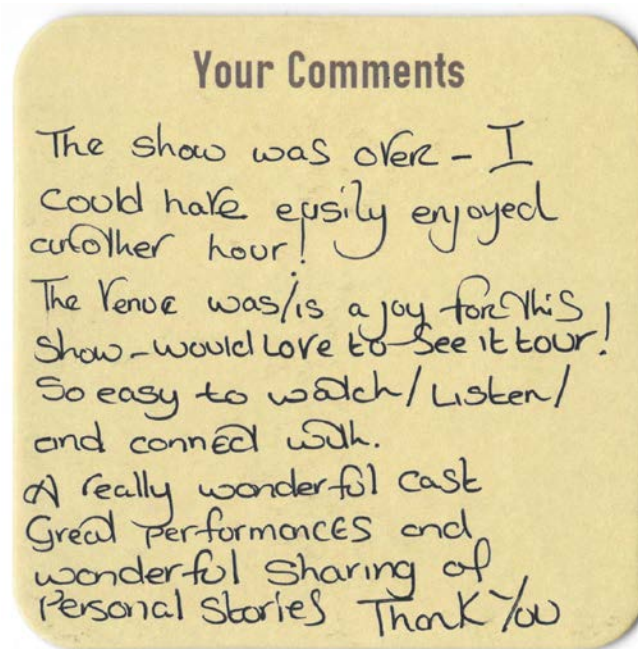 Your Comments
The show was over - I
could have easily enjoyed
another hour!
The Venue was/is a joy for this
show - would love to see it tour!
So easy to watch / Listen /
and connect with.
A really wonderful cast
Great performances and
wonderful sharing of
Personal Stories Thank You